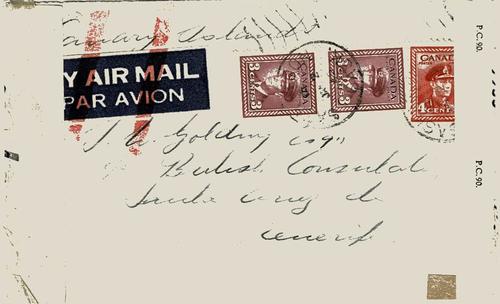 Canary Island
P.C. 90.
Y AIR MAIL
PAR AVION
3 CENTS 3
CANADA
3 CENTS 3
CANADA
CANADA
4 CENTS
Esq.
British Consulate
Santa Cruz de
Tenerif
P.C. 90.